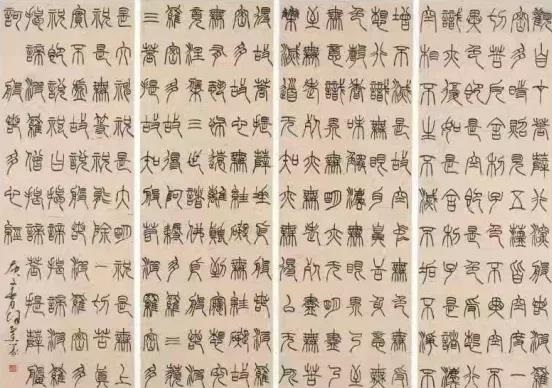 觀自在菩薩行深般若波羅
蜜多時照見五蘊皆空度一
切苦厄舍利子色不異空空不
異色色即是空空即是色受想行
識亦復如是舍利子是諸法
空相不生不滅不垢不淨不
增不減是故空中無色無受
想行識無眼耳鼻舌身意無
色聲香味觸法無眼界乃
至無意識界無無明亦無無明盡乃
至無老死亦無老死盡無苦
集滅道無智亦無得以無所
得故菩提薩埵依般若波羅
蜜多故心無罣礙無罣礙故
無有恐怖遠離顛倒夢想究
竟涅槃三世諸佛依般若波
羅蜜多故得阿耨多羅三藐
三菩提故知般若波羅蜜多
是大神咒是大明咒是無上
咒是無等等咒能除一切苦真
實不虛故說般若波羅蜜多
咒即說咒曰揭諦揭諦波羅
揭諦波羅僧揭諦菩提薩婆
訶般若波羅蜜多心經